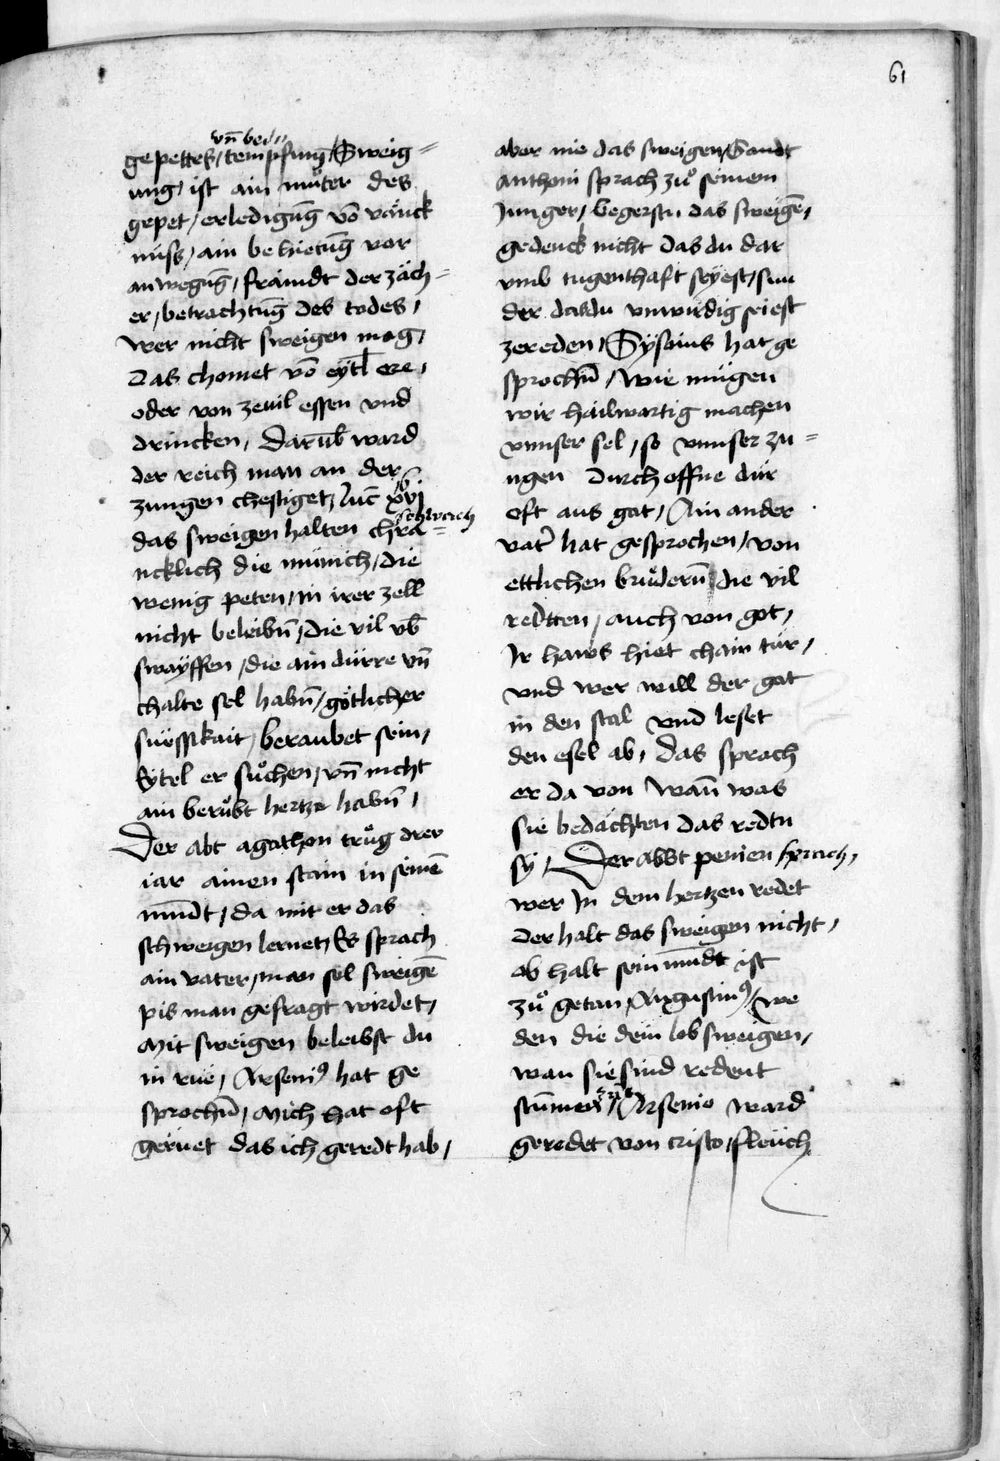 61
vn̄ bed
gepettes / tempfung / Sweig =
ung / ist ain můter des
gepet / erledigūg vō väuck
nuss / ain behietūg vor
anwegūg / främdt der zäch =
er / betrachtūg des todes /
wer nicht sweigen mag /
das chomet vō eytl ere /
oder von zeuil essen vnd
drincken / Darūb ward
der reich man an der
zungen chestiget / luc̄ xvi
schwach
das sweigen halten chra =
ncklich die münich / die
wenig peten / in irer zell
nicht beleibn̄ / die vil vb̄
swayffen / die ain dürre vn̄
chalte sel habn̄ / götlicher
süessikait / beraubet sein /
Eytel er sůchen / vn̄ nicht
ain berůbt hertze habn̄ /
Der abt agathon trůg drey
iar ainen stain in seinē
mundt / da mit er das
schweigen lernet / Es sprach
ain vater / man sol sweigē
pis man gefragt wirdet /
Mit sweigen beleibst du
in rue / Arseni⁹ hat ge
sprochn̄ / Mich hat oft
gerüet das ich geredt hab /
aber nie das sweigen / Sandt
Anthoni sprach zů seinem
Junger / begerstu das sweigē /
gedenck nicht das du dar
vmb tugenthaft seyest / sun
der dasdu vnwirdig seiest
zereden / Sysoius hat ge
sprochn̄ / Wie mügen
wir hailwartig machen
vnnser sel / so vnnser zu =
ngen durch offne dür
oft aus gat / Ain ander
vater hat gesprochen / von
ettlichen brůdern̄ die vil
redtten / auch von got /
Ir haws hiet chain tür /
vnd wer will der gat
in den stal vnd leset
den esel ab / Das sprach
er da von Wan̄ was
sie bedächten das redtn
sy / Der abbt pemen sprach /
wer In dem hertzen redet
der halt das sweigen nicht /
ob halt sein mundt ist
zů getan / Augustin⁹ / we
den die dein lob sweigen /
wan sie sind redent
stūmen / Arsenio ward
geredet von cristo / fleuch